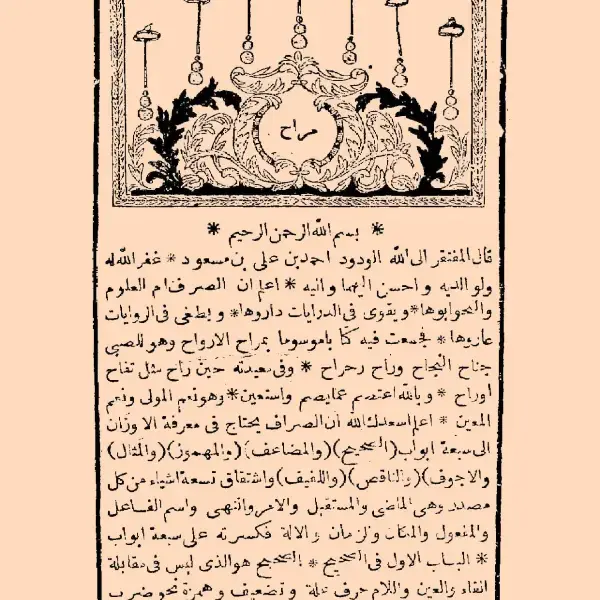 مراح
* بسم الله الرحمن الرحيم *
قال المفتقر الى الله الودود احمد بن على بن مسعود * غفر الله له
ولوالديه و احسن اليهما واليه * اعلم ان الصرف ام العلوم
والنحو ابوها * و يقوى فى الدرايات داروها * و يطغى فى الروايات
عاروها * فجمعت فيه كتابا موسوما بمراح الارواح وهو للصبى
جناح النجاح وراح رحراح * وفى معدته حين راح مثل تفاح
اوراح * و بالله اعتصم عما يصم واستعين * وهو نعم المولى ونعم
المعين * اعلم اسعدك الله ان الصراف يحتاج فى معرفة الاوزان
الى سبعة ابواب (الصحيح) (والمضاعف) (والمهموز) (والمثال)
والاجوف) (والناقص) (واللفيف) واشتقاق تسعة اشياء من كل
مصدر وهى الماضى والمستقبل والامر والنهى واسم الفاعل
والمفعول والمكان والزمان والالة فكسرته على سبعة ابواب
* الباب الاول فى الصحيح * الصحيح هو الذى ليس فى مقابلة
الفاء والعين واللام حرف علة و تضعيف و همزة نحو ضرب